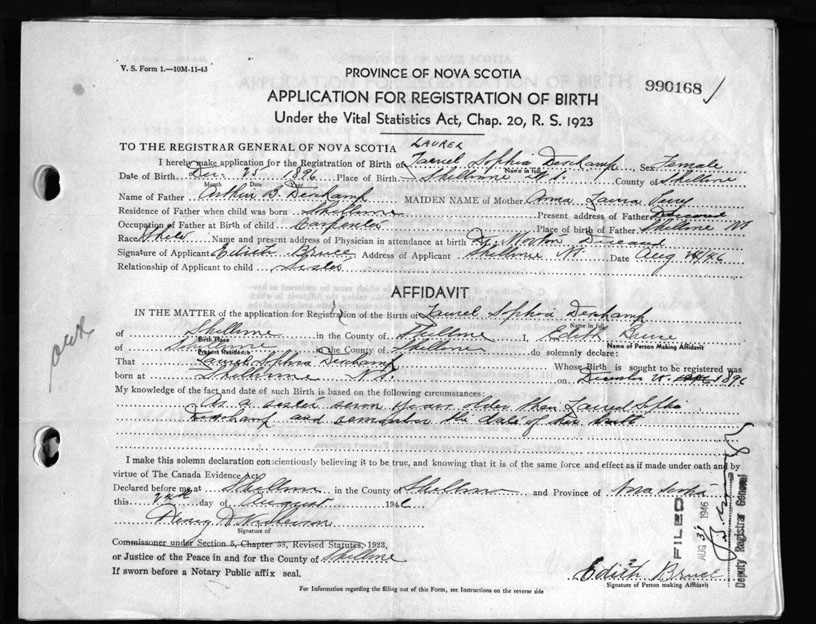 V. S. Form 1.—10M-11-43
PROVINCE OF NOVA SCOTIA
990168
APPLICATION FOR REGISTRATION OF BIRTH
Under the Vital Statistics Act, Chap. 20, R. S. 1923
TO THE REGISTRAR GENERAL OF NOVA SCOTIA LAUREL
I hereby make application for the Registration of Birth of Laurel Sophia Name in full Sex Female
Date of Birth Dec 25 1896 Place of Birth Shelburne N.S. County of Shelburne
Month Date Year
Name of Father Arthur B. MAIDEN NAME of Mother Anna Laura
Residence of Father when child was born Shelburne Present address of Father Deceased
Occupation of Father at Birth of child Carpenter Place of birth of Father Shelburne NS
Race White Name and present address of Physician in attendance at birth Dr. Morton Deceased
Signature of Applicant Edith Bruce Address of Applicant Shelburne N.S. Date Aug /46
Relationship of Applicant to child Sister
AFFIDAVIT
IN THE MATTER of the application for Registration of the Birth of Laurel Sophia
Name in full
of Shelburne in the County of Shelburne I, Edith Bruce
Birth Place Name of Person Making Affidavit
of Shelburne in the County of Shelburne do solemnly declare:
Present Residence
That Laurel Sophia Whose Birth is sought to be registered was
born at Shelburne N.S. on December 25 1896
My knowledge of the fact and date of such Birth is based on the following circumstances:
As a sister seven years older than Laurel Sophia
and remember the date of her birth
I make this solemn declaration conscientiously believing it to be true, and knowing that it is of the same force and effect as if made under oath and by
virtue of The Canada Evidence Act
Declared before me at Shelburne in the County of Shelburne and Province of Nova Scotia
this day of August 1946
Henry
Signature of
Commissioner under Section 5, Chapter 38, Revised Statutes, 1923,
or Justice of the Peace in and for the County of Shelburne
If sworn before a Notary Public affix seal.
Edith Bruce
Signature of Person making Affidavit
For Information regarding the filling out of this Form, see Instructions on the reverse side
FILED
AUG 31 1946
Deputy Registrar General